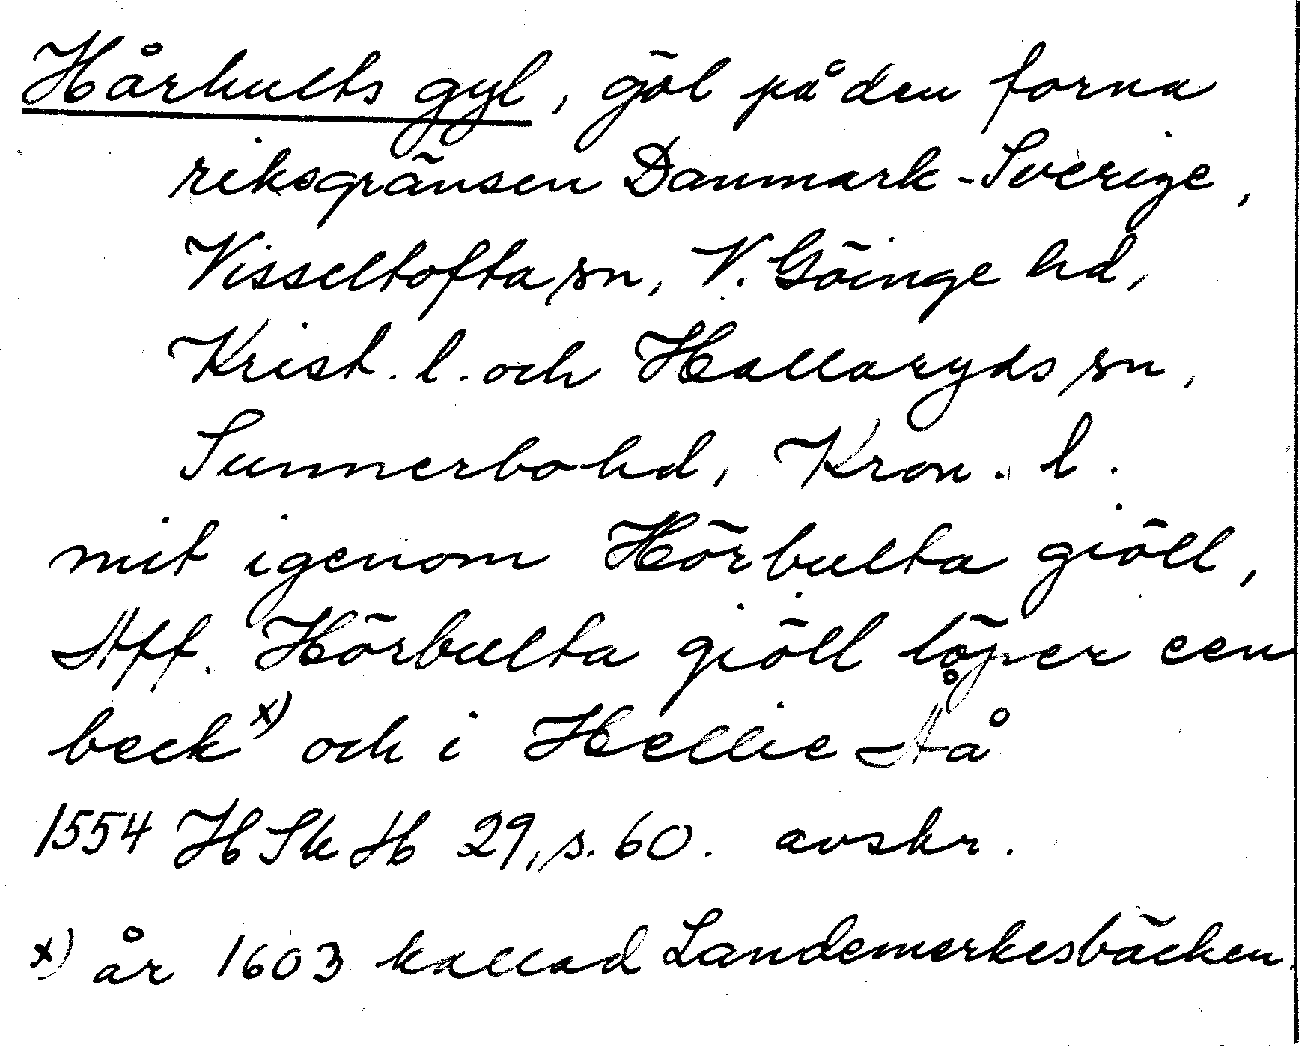 Hårkults gyl, göl på den forna
riksgränsen Danmark-Sverige,
Visseltofta sn, V. Göinge hd,
Krist. l. och Hallaryds sn,
Sunnerbo hd, Kron. l.
mit igenom Hörbulta giöll,
Aff. Hörbulta giöll löper een
beck x) och i Hellie Åå
1554 HSkH 29, s. 60. avskr.
x) år 1603 kallad Landemerkesbäcken.